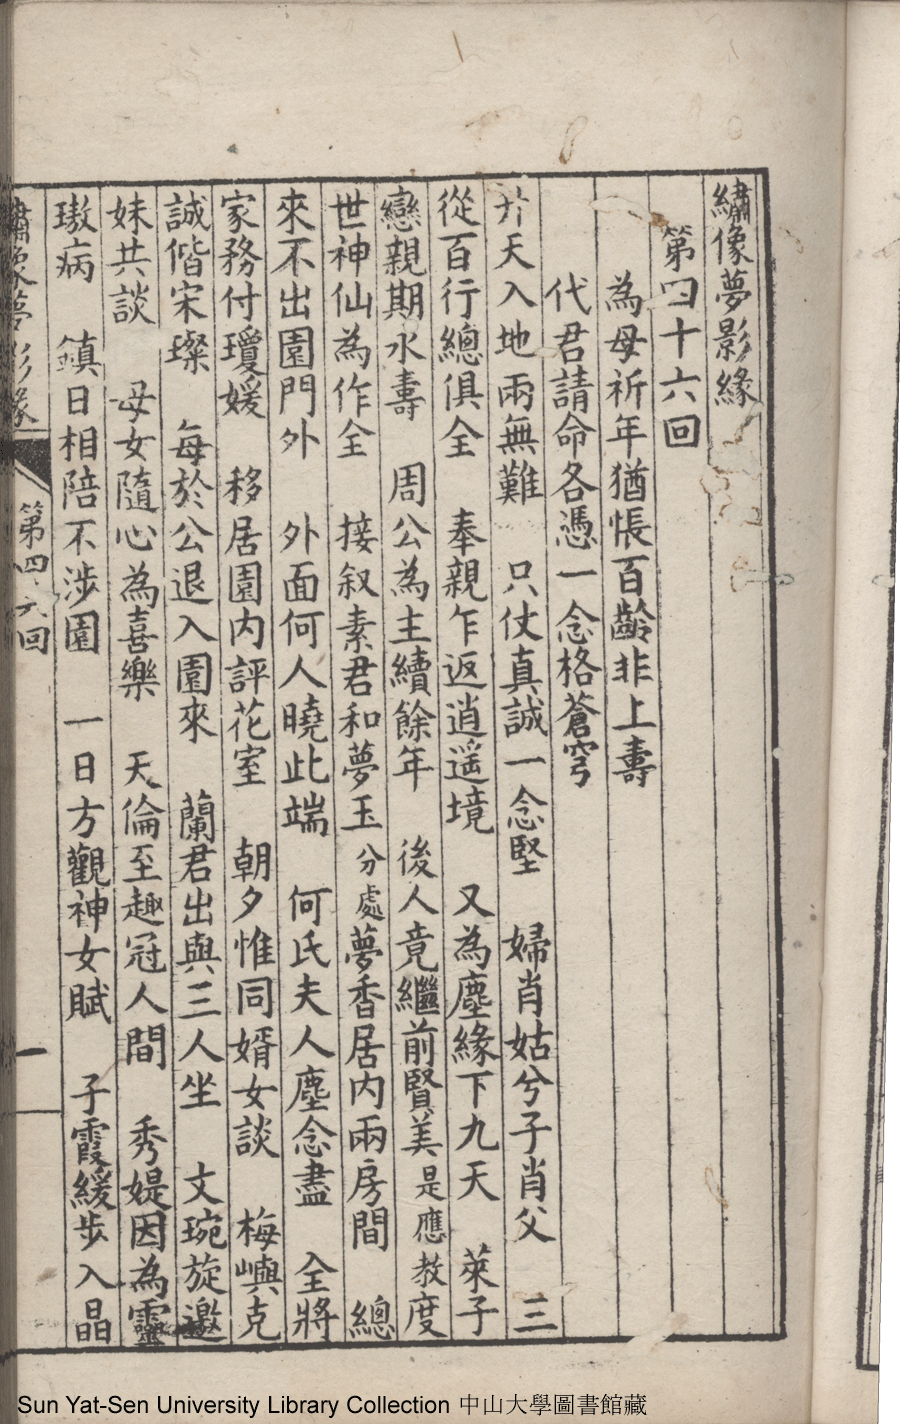 繡像夢影緣
第四十六回
為母祈年猶悵百齡非上壽
代君請命各憑一念格蒼穹
升天入地兩無難　只仗真誠一念堅　婦肖姑兮子肖父　三
從百行總俱全　奉親乍返逍遥境　又為塵緣下九天　萊子
戀親期永壽　周公為主續餘年　後人竟繼前賢美　是應教度
世神仙為作全　接叙素君和夢玉　分處夢香居内兩房間　總
來不出園門外　外面何人曉此端　何氏夫人塵念盡　全將
家務付瓊媛　移居園内評花室　朝夕惟同婿女談　梅嶼克
誠偕宋璨　每於公退入園來　蘭君出與三人坐　文琬旋邀
妹共談　母女隨心為喜樂　天倫至趣冠人間　秀媞因為靈
璈病　鎮日相陪不涉園　一日方觀神女賦　子霞緩步入晶
繡像夢影緣
第四十六回
一
Sun Yat-Sen University Library Collection 中山大學圖書館藏